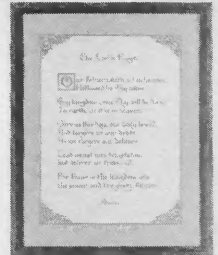 The Lord's Prayer
Our Father which art in heaven,
Hallowed be Thy name.
Thy kingdom come, Thy will be done,
in earth, as it is in heaven.
Give us this day our daily bread,
And forgive us our debts
As we forgive our debtors
Lead us not into temptation,
but deliver us from evil
For thine is the kingdom and
the power, and the glory,
Amen